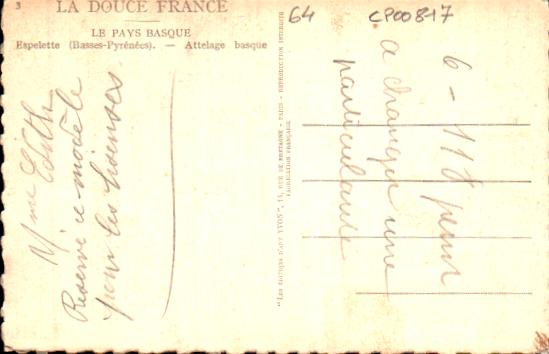 3
LA DOUCE FRANCE
LE PAYS BASQUE
Espelette (Basses-Pyrénées). — Attelage basque
64
CP00847
"LES ÉDITIONS D'ART YVON", 15, RUE DE BRETAGNE - PARIS - REPRODUCTION INTERDITE
FABRICATION FRANÇAISE
Mme Edith
Reserve ce modèle
pour les
6 - 118 pour
a changer une
particularité